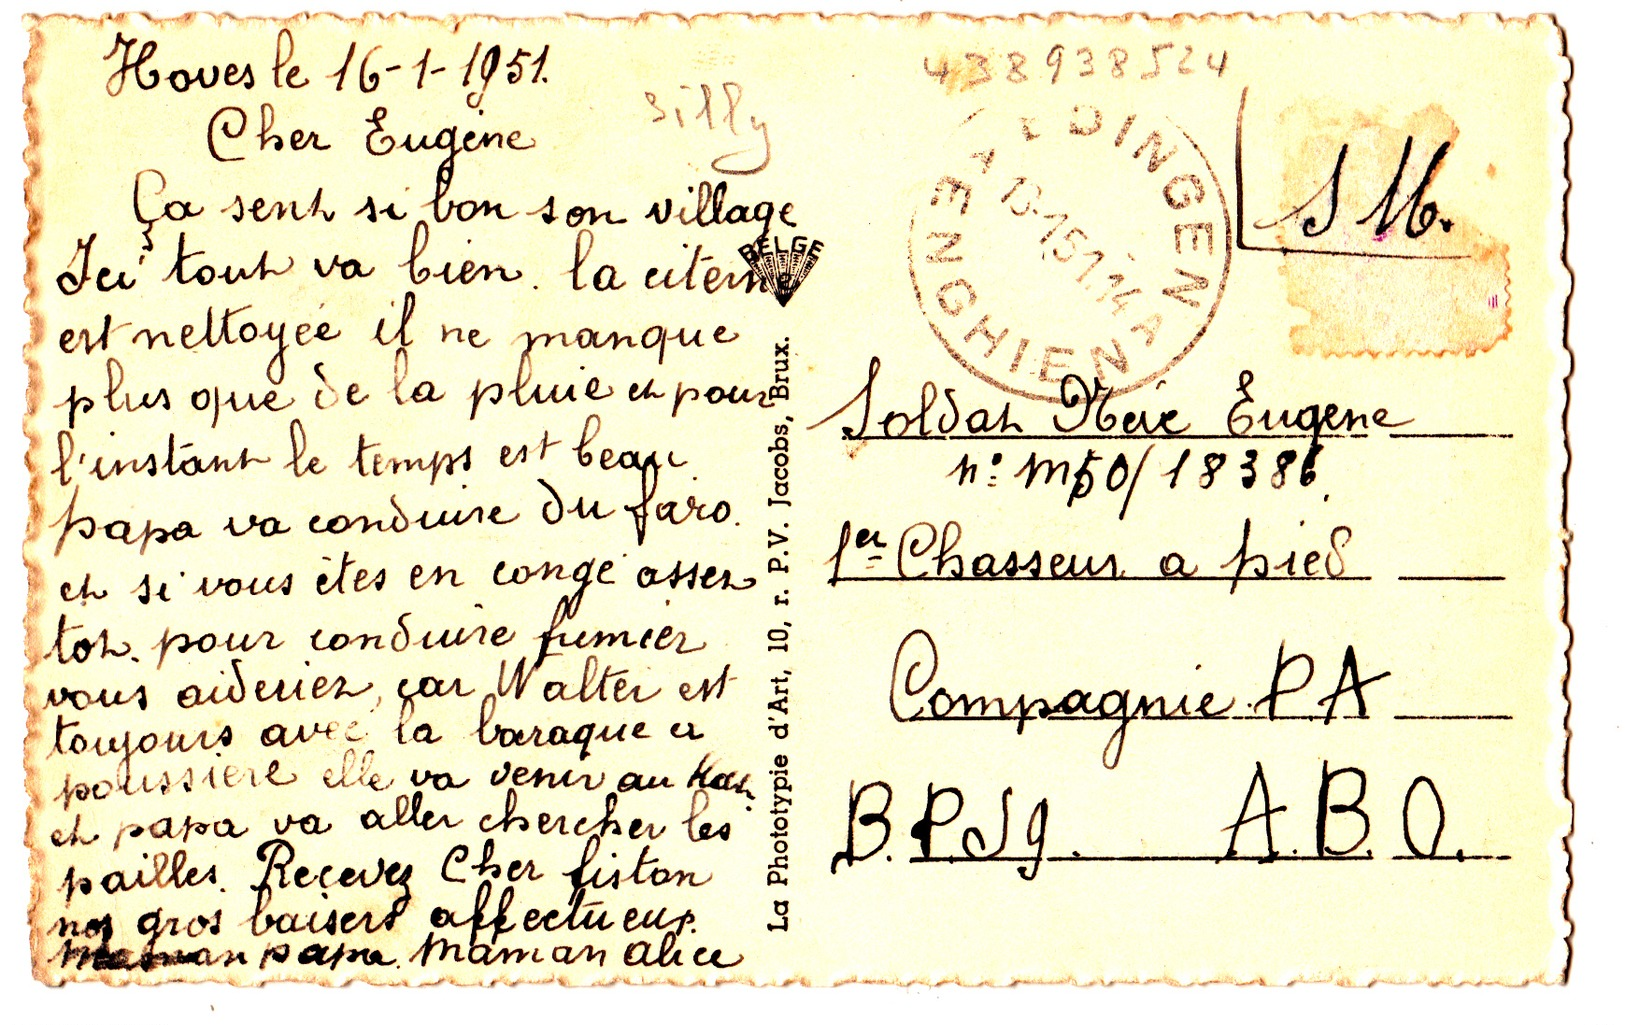 Hoves le 16-1-1951.
Cher Eugène
Ça sent si bon son village
Ici tout va bien. la citerne
est nettoyée il ne manque
plus que de la pluie et pour
l'instant le temps est beau
papa va conduire du faro.
et si vous êtes en congé assez
tot. pour conduire fumier
vous aideriez, car Walter est
toujours avec la baraque a
poussière elle va venir au
et papa va aller chercher les
pailles. Recevez Cher fiston
nos gros baisers affectueux.
papa. Maman Alice
Silly
BELGE
La Phototypie d'Art, 10, r. P.V. Jacobs, Brux.
438938524
EDINGEN
A 13.1.51.14 A
ENGHIEN
S M.
Soldat Eugène
n° M50/18386.
1er Chasseur a pied
Compagnie P A
B.P.S 9. A.B.O.